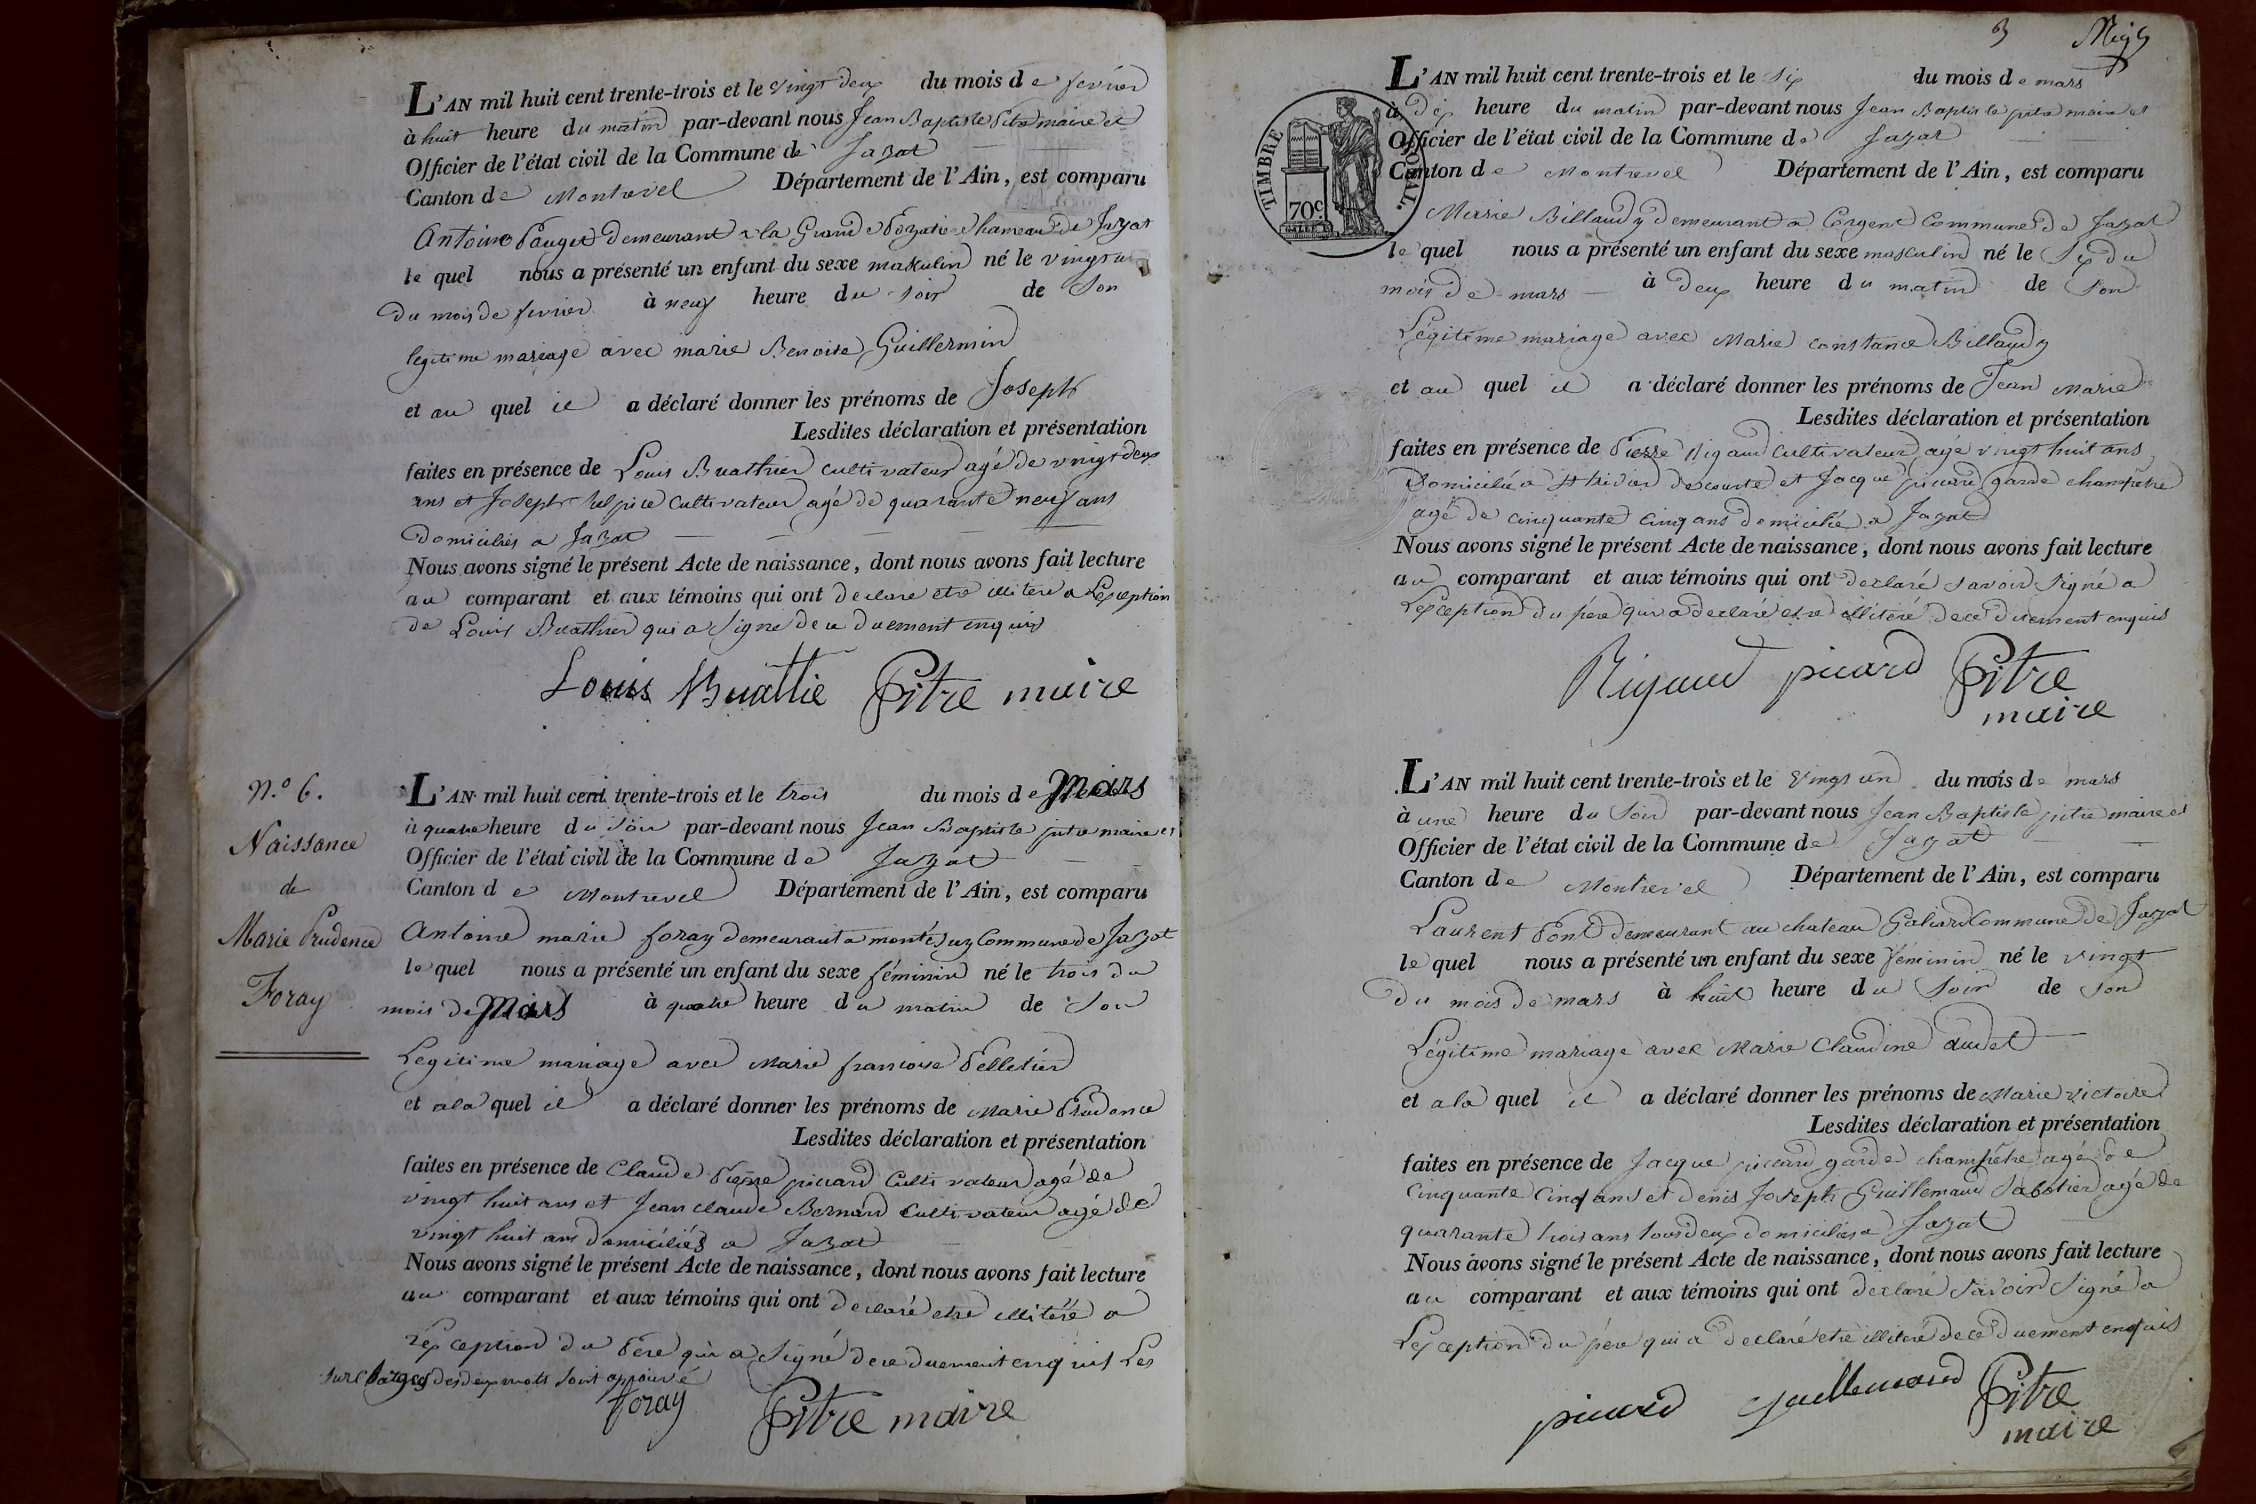 L'AN mil huit cent trente-trois et le vingt deux du mois de fevrier
à huit heure du matin par-devant nous Jean Baptiste Pitre maire et
Officier de l'état civil de la Commune de Jazat
Canton de Montrevel Département de l'Ain, est comparu
Antoine Pauget demeurant a la Grande hameau de Jazat
le quel nous a présenté un enfant du sexe maskulin né le vingt
du mois de fevrier à neuf heure du soir de Son
legitime mariage avec marie Benoite Guillermin
et au quel il a déclaré donner les prénoms de Joseph
Lesdites déclaration et présentation
faites en présence de Louis Buathier cultivateur agé de vingt deux
ans et Joseph cultivateur agé de quarante neuf ans
domiciliés a Jazat
Nous avons signé le présent Acte de naissance, dont nous avons fait lecture
au comparant et aux témoins qui ont declaré etre illiteré a Lexception
de Louis Buathier qui a Signé de ce duement enquis
Louis Buattie Pitre maire
N.o 6.
Naissance
de
Marie Prudence
Foray
L'AN mil huit cent trente-trois et le trois du mois de Mars
à quatre heure du Soir par-devant nous Jean Baptiste pitre maire et
Officier de l'état civil de la Commune de Jazat
Canton de Montrevel Département de l'Ain, est comparu
Antoine marie foray demeurant a montésuy Commune de Jazat
le quel nous a présenté un enfant du sexe féminin né le trois du
mois de Mars à quatre heure du matin de Son
Legitime mariage avec Marie francoise Pelletier
et a la quel il a déclaré donner les prénoms de Marie Prudence
Lesdites déclaration et présentation
faites en présence de Claude Pierre picard Cultivateur agé de
vingt huit ans et Jean claude Bernard Cultivateur agé de
vingt huit ans domiciliés a Jazat
Nous avons signé le présent Acte de naissance, dont nous avons fait lecture
au comparant et aux témoins qui ont declaré etre illiteré a
lexception du Pere qui a Signé de ce duement enquis Les
surcharges des deux mots sont approuvé
foray Pitre maire
3
TIMBRE ROYAL.
70c
L'AN mil huit cent trente-trois et le six du mois de mars
à dix heure du matin par-devant nous Jean Baptiste pitre maire et
Officier de l'état civil de la Commune de Jazat
Canton de Montrevel Département de l'Ain, est comparu
Marie Billaudy demeurant a Corgent Commune de Jazat
le quel nous a présenté un enfant du sexe masculin né le Six du
mois de mars à deux heure du matin de Son
Légitime mariage avec Marie constance Billaudy
et au quel il a déclaré donner les prénoms de Jean Marie
Lesdites déclaration et présentation
faites en présence de Pierre Rigaud cultivateur agé vingt huit ans
Domicilié a St trivier de courte et Jacque picard garde champêtre
agé de cinquante cinq ans domicilié a Jazat
Nous avons signé le présent Acte de naissance, dont nous avons fait lecture
au comparant et aux témoins qui ont declaré savoir Signé a
Lexception du pére qui a declaré etre illiteré de ce duement enquis
Rigaud picard Pitre
maire
L'AN mil huit cent trente-trois et le vingt un du mois de mars
à une heure du Soir par-devant nous Jean Baptiste pitre maire et
Officier de l'état civil de la Commune de Jazat
Canton de Montrevel Département de l'Ain, est comparu
Laurent Pont demeurant au chateau Commune de Jazat
le quel nous a présenté un enfant du sexe féminin né le vingt
du mois de mars à huit heure du Soir de Son
Légitime mariage avec Marie Claudine audet
et a la quel il a déclaré donner les prénoms de Marie victoire
Lesdites déclaration et présentation
faites en présence de Jacque picard garde champêtre agé de
cinquante cinq ans et denis Joseph Guillemaud Sabotier agé de
quarante trois ans tous deux domiciliés a Jazat
Nous avons signé le présent Acte de naissance, dont nous avons fait lecture
au comparant et aux témoins qui ont declaré Savoir Signé a
Lexception du pére qui a declaré etre illiteré de ce duement enquis
picard guillemaud Pitre
maire